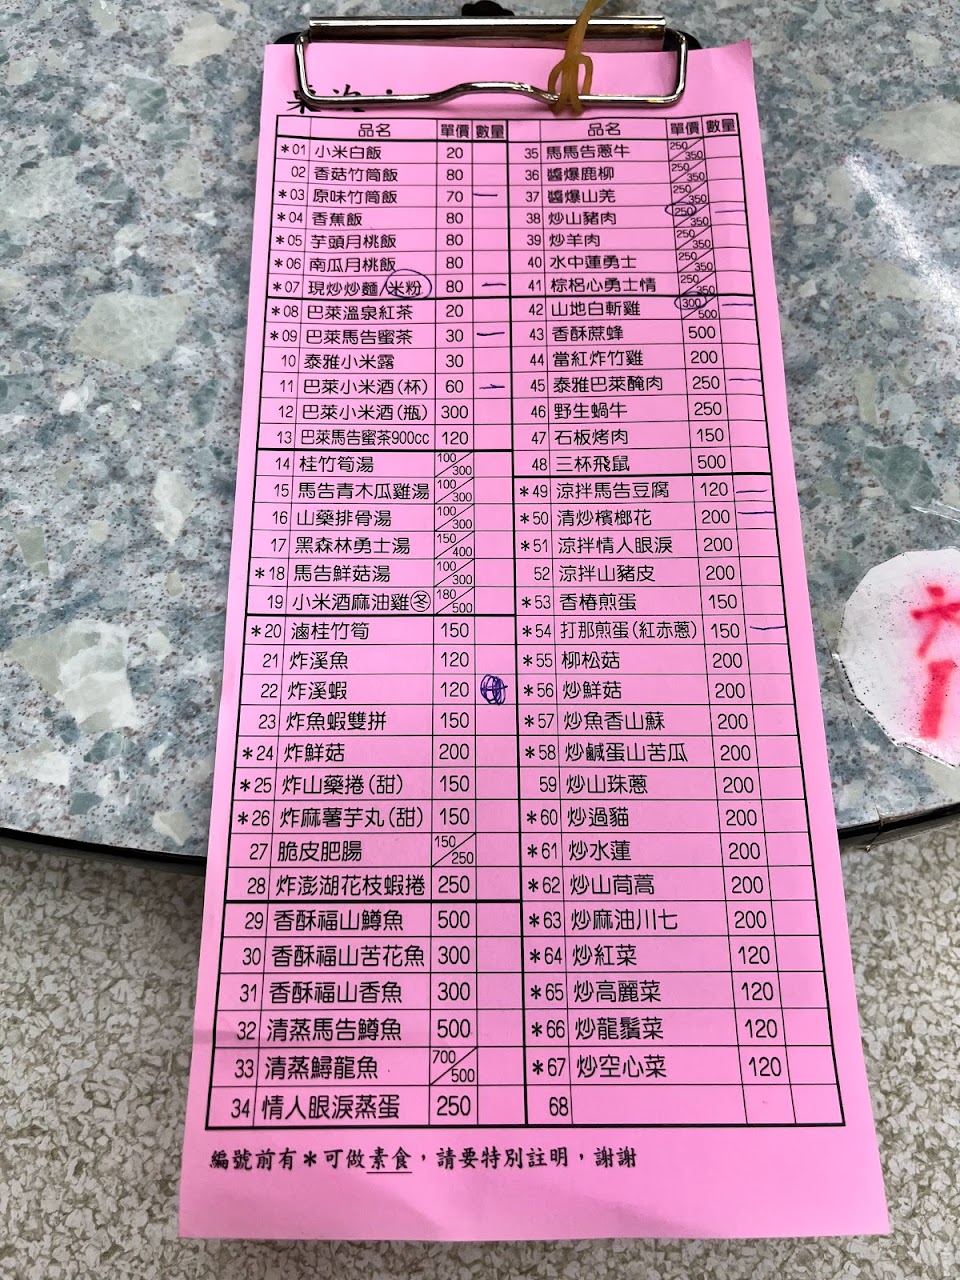 品名 單價 數量
*01 小米白飯 20
02 香菇竹筒飯 80
*03 原味竹筒飯 70 一
*04 香蕉飯 80
*05 芋頭月桃飯 80
*06 南瓜月桃飯 80
*07 現炒炒麵/米粉 80 一
*08 巴萊溫泉紅茶 20
*09 巴萊馬告蜜茶 30 一
10 泰雅小米露 30
11 巴萊小米酒(杯) 60 一
12 巴萊小米酒(瓶) 300
13 巴萊馬告蜜茶900cc 120
14 桂竹筍湯 100/300
15 馬告青木瓜雞湯 100/300
16 山藥排骨湯 100/300
17 黑森林勇士湯 150/400
*18 馬告鮮菇湯 100/300
19 小米酒麻油雞冬 180/500
*20 滷桂竹筍 150
21 炸溪魚 120
22 炸溪蝦 120
23 炸魚蝦雙拼 150
*24 炸鮮菇 200
*25 炸山藥捲(甜) 150
*26 炸麻薯芋丸(甜) 150
27 脆皮肥腸 150/250
28 炸澎湖花枝蝦捲 250
29 香酥福山鱒魚 500
30 香酥福山苦花魚 300
31 香酥福山香魚 300
32 清蒸馬告鱒魚 500
33 清蒸鱘龍魚 700/500
34 情人眼淚蒸蛋 250
品名 單價 數量
35 馬馬告蔥牛 250/350
36 醬爆鹿柳 250/350
37 醬爆山羌 250/350
38 炒山豬肉 250/350 一
39 炒羊肉 250/350
40 水中蓮勇士 250/350
41 棕梠心勇士情 250/350
42 山地白斬雞 300/500 一
43 香酥蔗蜂 500
44 當紅炸竹雞 200
45 泰雅巴萊醃肉 250 一
46 野生蝸牛 250
47 石板烤肉 150
48 三杯飛鼠 500
*49 涼拌馬告豆腐 120 一
*50 清炒檳榔花 200 一
*51 涼拌情人眼淚 200
52 涼拌山豬皮 200
*53 香椿煎蛋 150
*54 打那煎蛋(紅赤蔥) 150 一
*55 柳松菇 200
*56 炒鮮菇 200
*57 炒魚香山蘇 200
*58 炒鹹蛋山苦瓜 200
59 炒山珠蔥 200
*60 炒過貓 200
*61 炒水蓮 200
*62 炒山茼蒿 200
*63 炒麻油川七 200
*64 炒紅菜 120
*65 炒高麗菜 120
*66 炒龍鬚菜 120
*67 炒空心菜 120
68
編號前有*可做素食，請要特別註明，謝謝